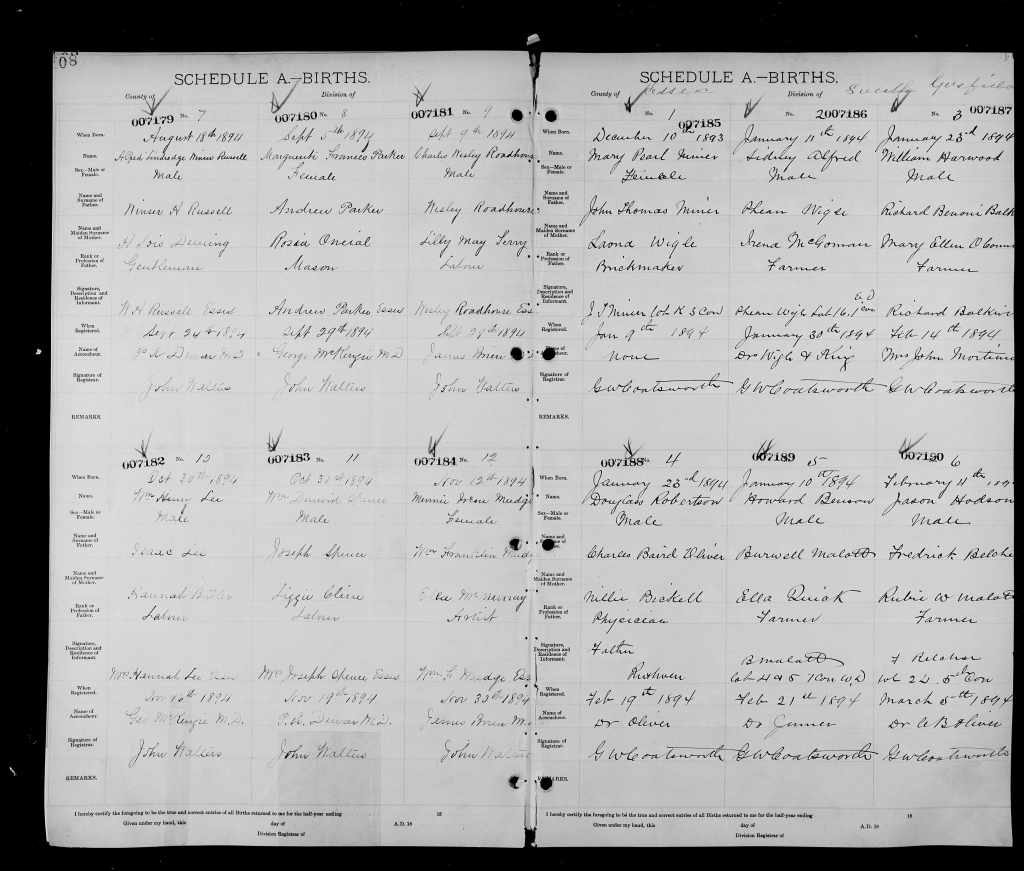 08
SCHEDULE A.—BIRTHS.
County of Division of
007179 No. 7 007180 No. 8 007181 No. 9
When Born. August 18th 1894 Sept 5th 1894 Sept 9th 1894
Name. Alfred Russell Marguerite Frances Parker Charles Wesley Roadhouse
Sex—Male or Female. Male Female Male
Name and Surname of Father. Winser H Russell Andrew Parker Wesley Roadhouse
Name and Maiden Surname of Mother. H Lois Deming Rosea Lilly May
Rank or Profession of Father. Gentleman Mason Labour
Signature, Description and Residence of Informant. W. H. Russell Essex Andrew Parker Essex Wesley Roadhouse Ess
When Registered. Sept 24th 1894 Sept 29th 1894 Sept 29th 1894
Name of Accoucheur. Dewar M.D George McKenzie M.D James Brien
Signature of Registrar. John Walters John Walters John Walters
REMARKS.
007182 No. 10 007183 No. 11 007184 No. 12
When Born. Oct 30th 1894 Oct 31st 1894 Nov 12th 1894
Name. Wm Henry Lee Wm Spence Minnie Irene Mudge
Sex—Male or Female. Male Male Female
Name and Surname of Father. Isaac Lee Joseph Spence Wm Franklin
Name and Maiden Surname of Mother. Hannah Lizzie Cline
Rank or Profession of Father. Labour Labour Artist
Signature, Description and Residence of Informant. Mrs Hannah Lee Essex Mrs Joseph Spence Essex Wm F. Mudge Ess
When Registered. Nov 16th 1894 Nov 19th 1894 Nov 30th 1894
Name of Accoucheur. Geo McKenzie M.D. P.A. Dewar M.D. James Brien M.
Signature of Registrar. John Walters John Walters John Walters
REMARKS.
I hereby certify the foregoing to be the true and correct entries of all Births returned to me for the half-year ending 18
Given under my hand, this day of A.D. 18
Division Registrar of
SCHEDULE A.—BIRTHS.
County of Essex Division of South Gosfield
No. 1 007185 2 007186 3 007187
When Born. December 10th 1893 January 11th 1894 January 23d 1894
Name. Mary Pearl Miner Sidney Alfred William Harwood
Sex—Male or Female. Female Male Male
Name and Surname of Father. John Thomas Miner Phean Wigle Richard Benoni
Name and Maiden Surname of Mother. Leona Wigle Irena McGorman Mary Ellen
Rank or Profession of Father. Brickmaker Farmer Farmer
Signature, Description and Residence of Informant. J T Miner Lot K 3 Con Phean Wigle Lot 16 1 Con E D Richard
When Registered. Jan 9th 1894 January 30th 1894 Feb 14th 1894
Name of Accoucheur. None Drs Wigle & King Mrs John
Signature of Registrar. G W Coatsworth G W Coatsworth G W Coatsworth
REMARKS.
007188 No. 4 007189 5 007190 6
When Born. January 23d 1894 January 10th 1894 February 11th
Name. Douglass Robertson Howard Benson Jason Hodson
Sex—Male or Female. Male Male Male
Name and Surname of Father. Charles Baird Oliver Burwell Malott Fredrick
Name and Maiden Surname of Mother. Nellie Bickell Ella Quick Rubie W Malott
Rank or Profession of Father. Physician Farmer Farmer
Signature, Description and Residence of Informant. Father Ruthven B Malott Lot 4 & 5 1 Con W.D F
When Registered. Feb 19th 1894 Feb 21st 1894 March 5th 1894
Name of Accoucheur. Dr Oliver Dr Jenner Dr C B Oliver
Signature of Registrar. G W Coatsworth G W Coatsworth G W Coatsworth
REMARKS.
I hereby certify the foregoing to be the true and correct entries of all Births returned to me for the half-year ending 18
Given under my hand, this day of A.D. 18
Division Registrar of